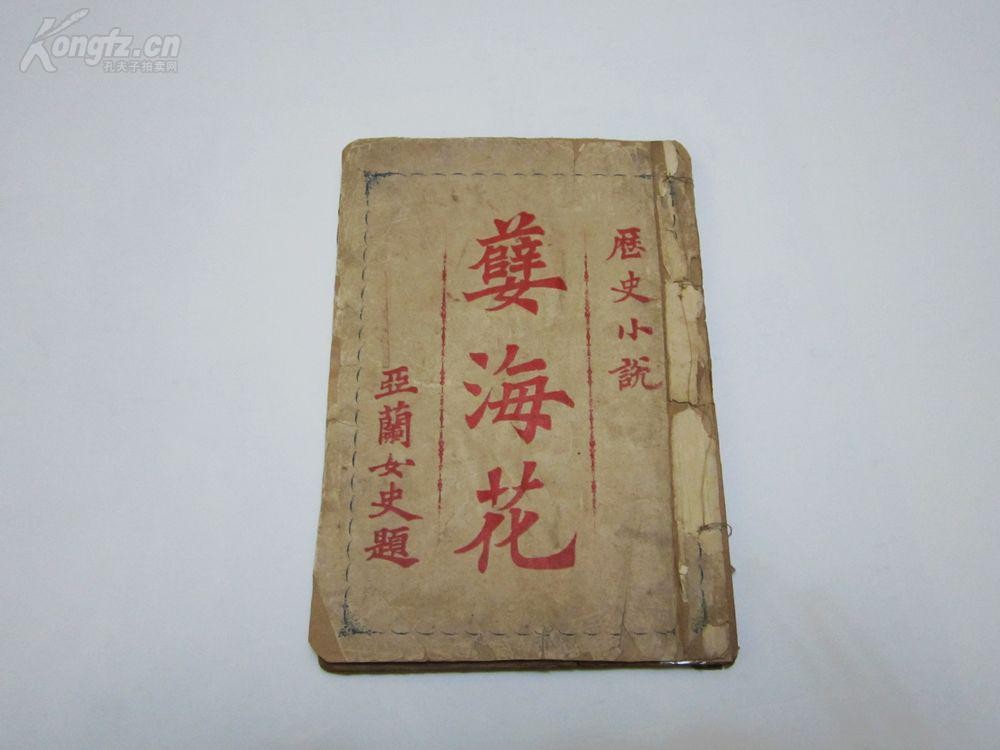 Kongfz.cn
孔夫子拍卖网
歷史小說
孽海花
亞蘭女史題